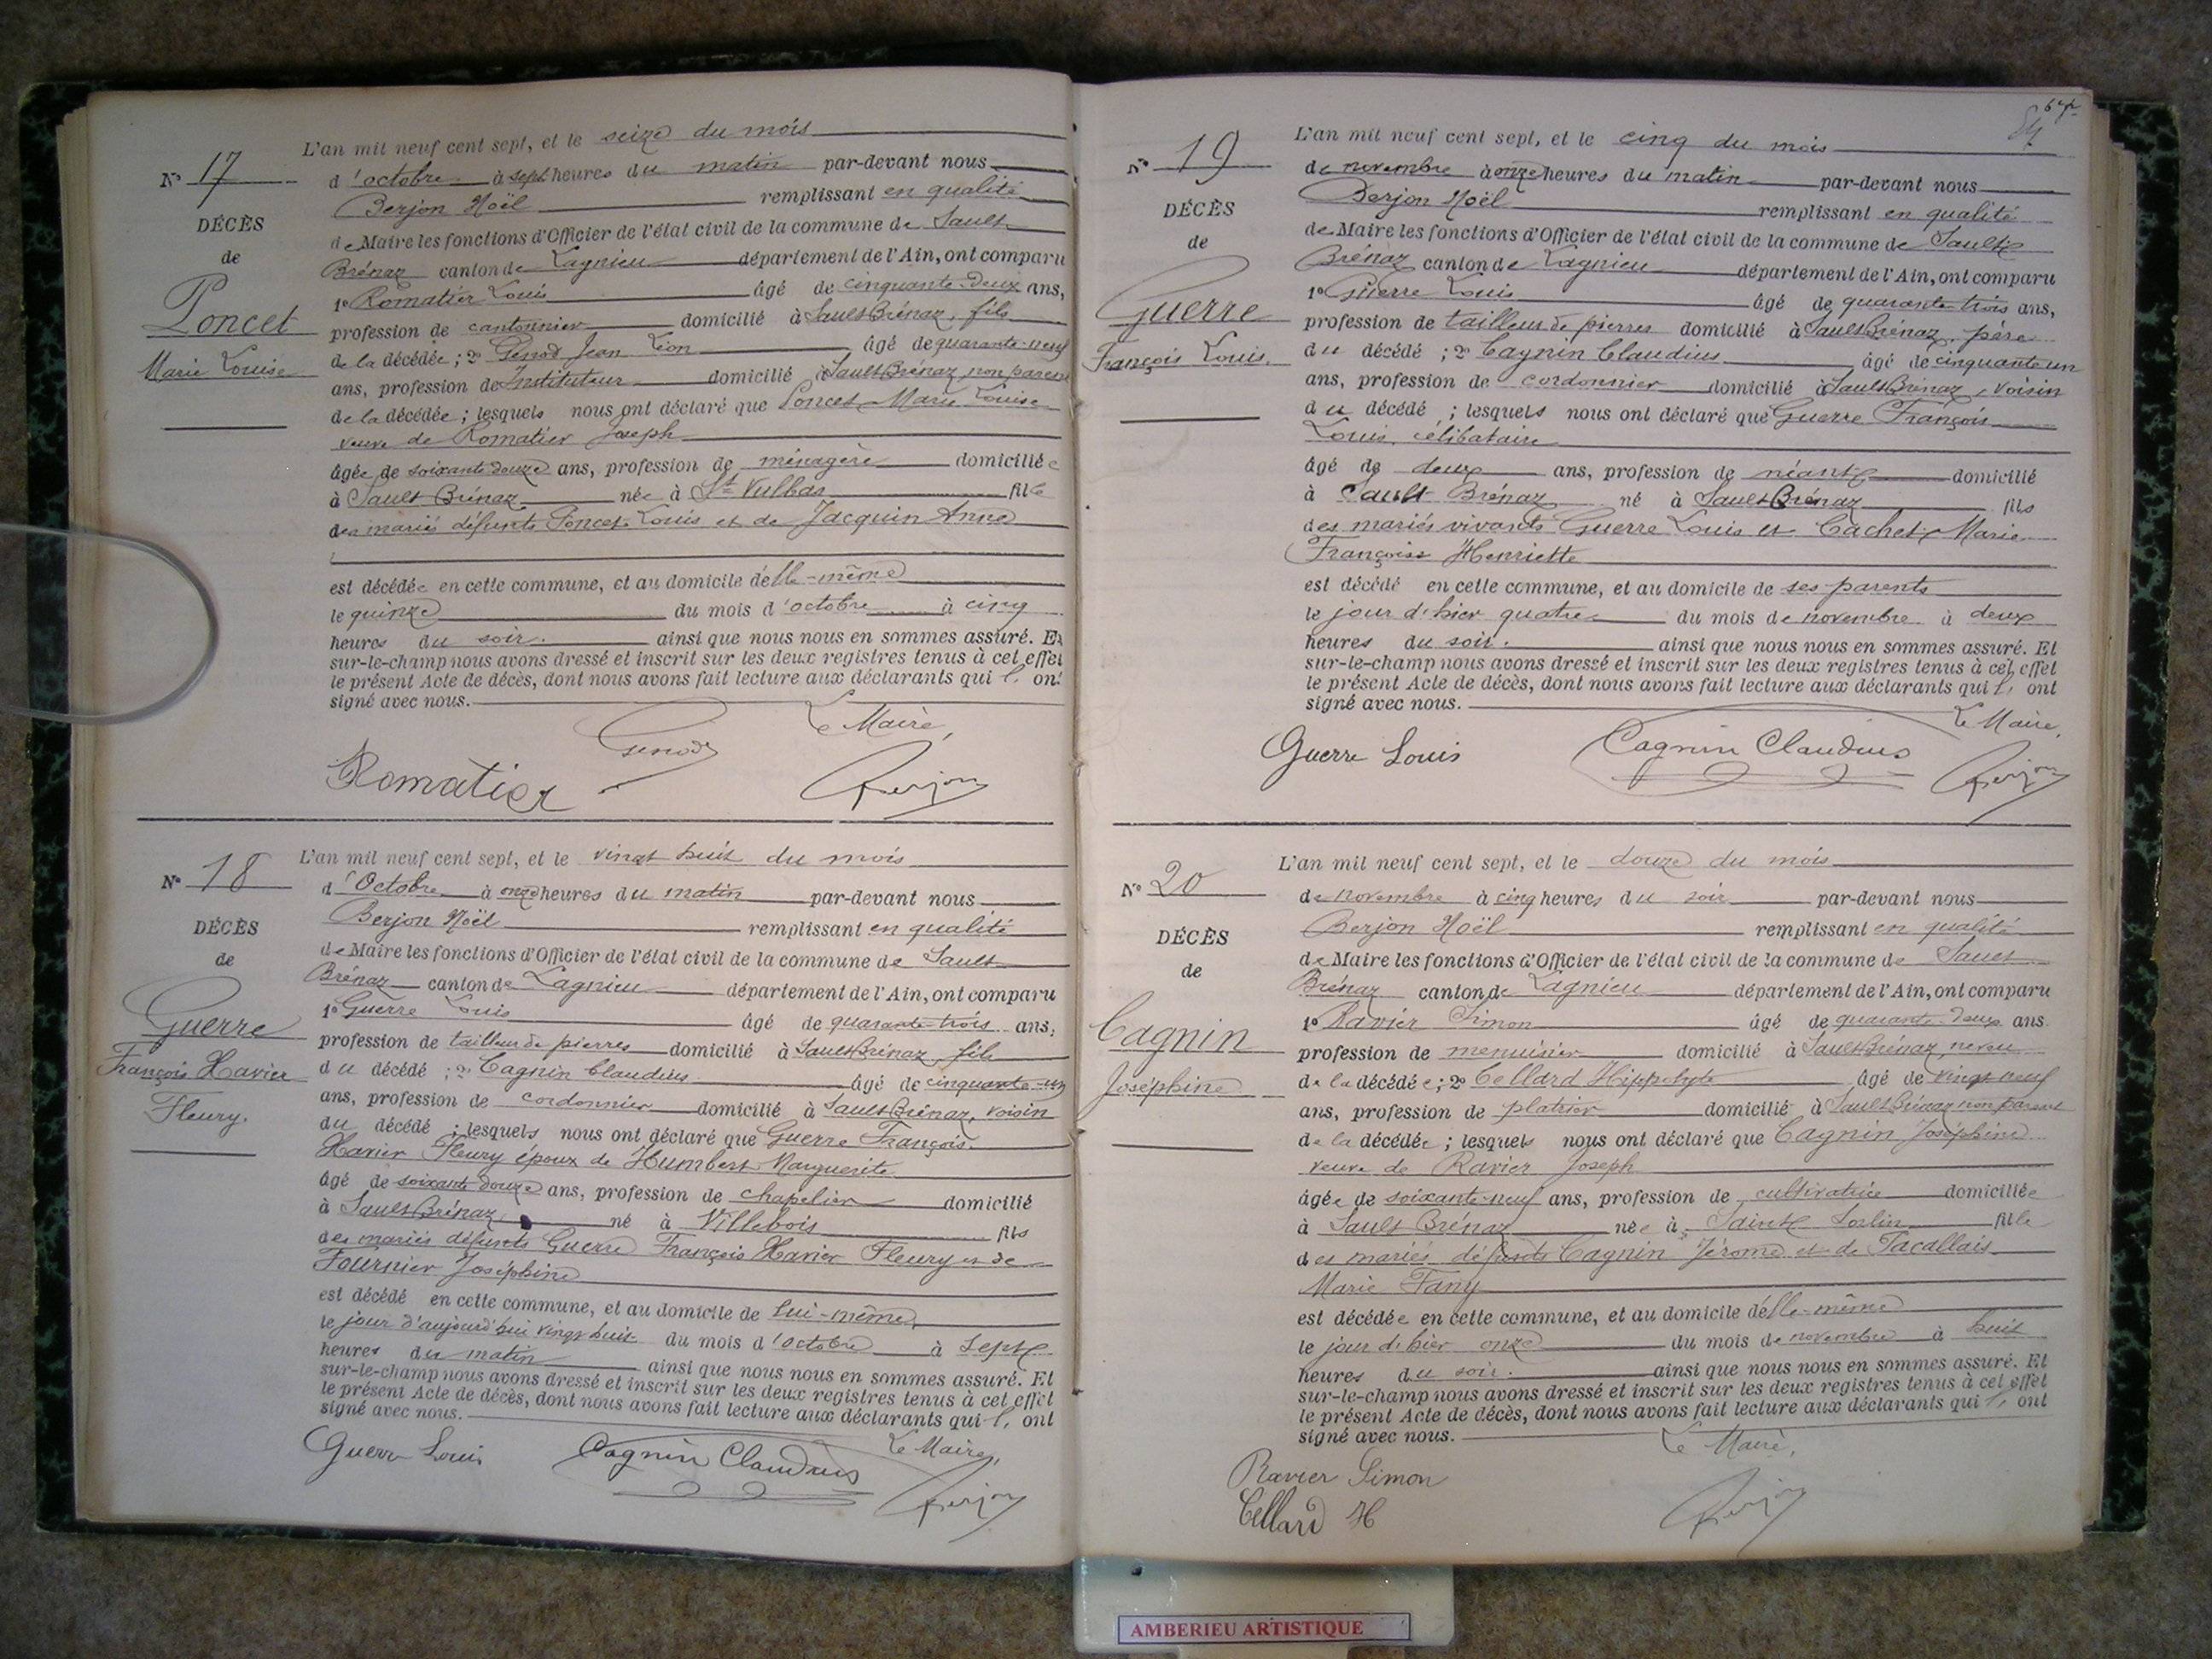 N° 17
DÉCÈS
de
Poncet
Marie Louise
L'an mil neuf cent sept, et le seize du mois
d'octobre à sept heures du matin par-devant nous
Berjon Noël remplissant en qualité
de Maire les fonctions d'Officier de l'état civil de la commune de Sault
Brénaz canton de Lagnieu département de l'Ain, ont comparu
1° Romatier Louis âgé de cinquante-deux ans,
profession de cantonnier domicilié à Sault Brénaz, fils
de la décédée ; 2° Genod Jean Léon âgé de quarante-neuf
ans, profession de Instituteur domicilié à Sault Brénaz, non parent
de la décédée ; lesquels nous ont déclaré que Poncet Marie Louise
veuve de Romatier Joseph
âgée de soixante douze ans, profession de ménagère domiciliée
à Sault Brénaz née à St Vulbas fille
des mariés défunts Poncet Louis et de Jacquin Anne
est décédée en cette commune, et au domicile d'elle-même
le quinze du mois d'octobre à cinq
heures du soir. ainsi que nous nous en sommes assuré. Et
sur-le-champ nous avons dressé et inscrit sur les deux registres tenus à cet effet
le présent Acte de décès, dont nous avons fait lecture aux déclarants qui l' ont
signé avec nous.
Le Maire,
Genod
Romatier Berjon
N° 18
DÉCÈS
de
Guerre
François Xavier
Fleury.
L'an mil neuf cent sept, et le vingt huit du mois
d'Octobre à onze heures du matin par-devant nous
Berjon Noël remplissant en qualité
de Maire les fonctions d'Officier de l'état civil de la commune de Sault
Brénaz canton de Lagnieu département de l'Ain, ont comparu
1° Guerre Louis âgé de quarante-trois ans,
profession de tailleur de pierres domicilié à Sault Brénaz, fils
du décédé ; 2° Cagnin Claudius âgé de cinquante-un
ans, profession de cordonnier domicilié à Sault Brénaz, voisin
du décédé ; lesquels nous ont déclaré que Guerre François
Xavier Fleury époux de Humbert Marguerite
âgé de soixante douze ans, profession de chapelier domicilié
à Sault Brénaz né à Villebois fils
des mariés défunts Guerre François Xavier Fleury et de
Fournier Joséphine
est décédé en cette commune, et au domicile de lui-même,
le jour d'aujourd'hui vingt huit du mois d'octobre à sept
heures du matin ainsi que nous nous en sommes assuré. Et
sur-le-champ nous avons dressé et inscrit sur les deux registres tenus à cet effet
le présent Acte de décès, dont nous avons fait lecture aux déclarants qui l' ont
signé avec nous.
Le Maire,
Guerre Louis Cagnin Claudius Berjon
N° 19
DÉCÈS
de
Guerre
François Louis.
L'an mil neuf cent sept, et le cinq du mois
de novembre à onze heures du matin par-devant nous
Berjon Noël remplissant en qualité
de Maire les fonctions d'Officier de l'état civil de la commune de Sault
Brénaz canton de Lagnieu département de l'Ain, ont comparu
1° Guerre Louis âgé de quarante-trois ans,
profession de tailleur de pierres domicilié à Sault Brénaz, père
du décédé ; 2° Cagnin Claudius âgé de cinquante un
ans, profession de cordonnier domicilié à Sault Brénaz, voisin
du décédé ; lesquels nous ont déclaré que Guerre François
Louis, célibataire
âgé de deux ans, profession de néant domicilié
à Sault Brénaz né à Sault Brénaz fils
des mariés vivants Guerre Louis et Cachet Marie
Françoise Henriette
est décédé en cette commune, et au domicile de ses parents
le jour d'hier quatre du mois de novembre à deux
heures du soir. ainsi que nous nous en sommes assuré. Et
sur-le-champ nous avons dressé et inscrit sur les deux registres tenus à cet effet
le présent Acte de décès, dont nous avons fait lecture aux déclarants qui l' ont
signé avec nous.
Le Maire,
Guerre Louis Cagnin Claudius Berjon
N° 20
DÉCÈS
de
Cagnin
Joséphine
L'an mil neuf cent sept, et le douze du mois
de novembre à cinq heures du soir par-devant nous
Berjon Noël remplissant en qualité
de Maire les fonctions d'Officier de l'état civil de la commune de Sault
Brénaz canton de Lagnieu département de l'Ain, ont comparu
1° Ravier Simon âgé de quarante-deux ans
profession de menuisier domicilié à Sault Brénaz, neveu
de la décédée ; 2° Cellard Hippolyte âgé de vingt neuf
ans, profession de platrier domicilié à Sault Brénaz non parent
de la décédée ; lesquels nous ont déclaré que Cagnin Joséphine
veuve de Ravier Joseph
âgée de soixante-neuf ans, profession de cultivatrice domiciliée
à Sault Brénaz née à Saint Sorlin fille
des mariés défunts Cagnin Jérome et de Tacallais
Marie Fany
est décédée en cette commune, et au domicile d'elle-même
le jour d'hier onze du mois de novembre à huit
heures du soir. ainsi que nous nous en sommes assuré. Et
sur-le-champ nous avons dressé et inscrit sur les deux registres tenus à cet effet
le présent Acte de décès, dont nous avons fait lecture aux déclarants qui l' ont
signé avec nous.
Le Maire,
Ravier Simon
Cellard H Berjon
AMBERIEU ARTISTIQUE